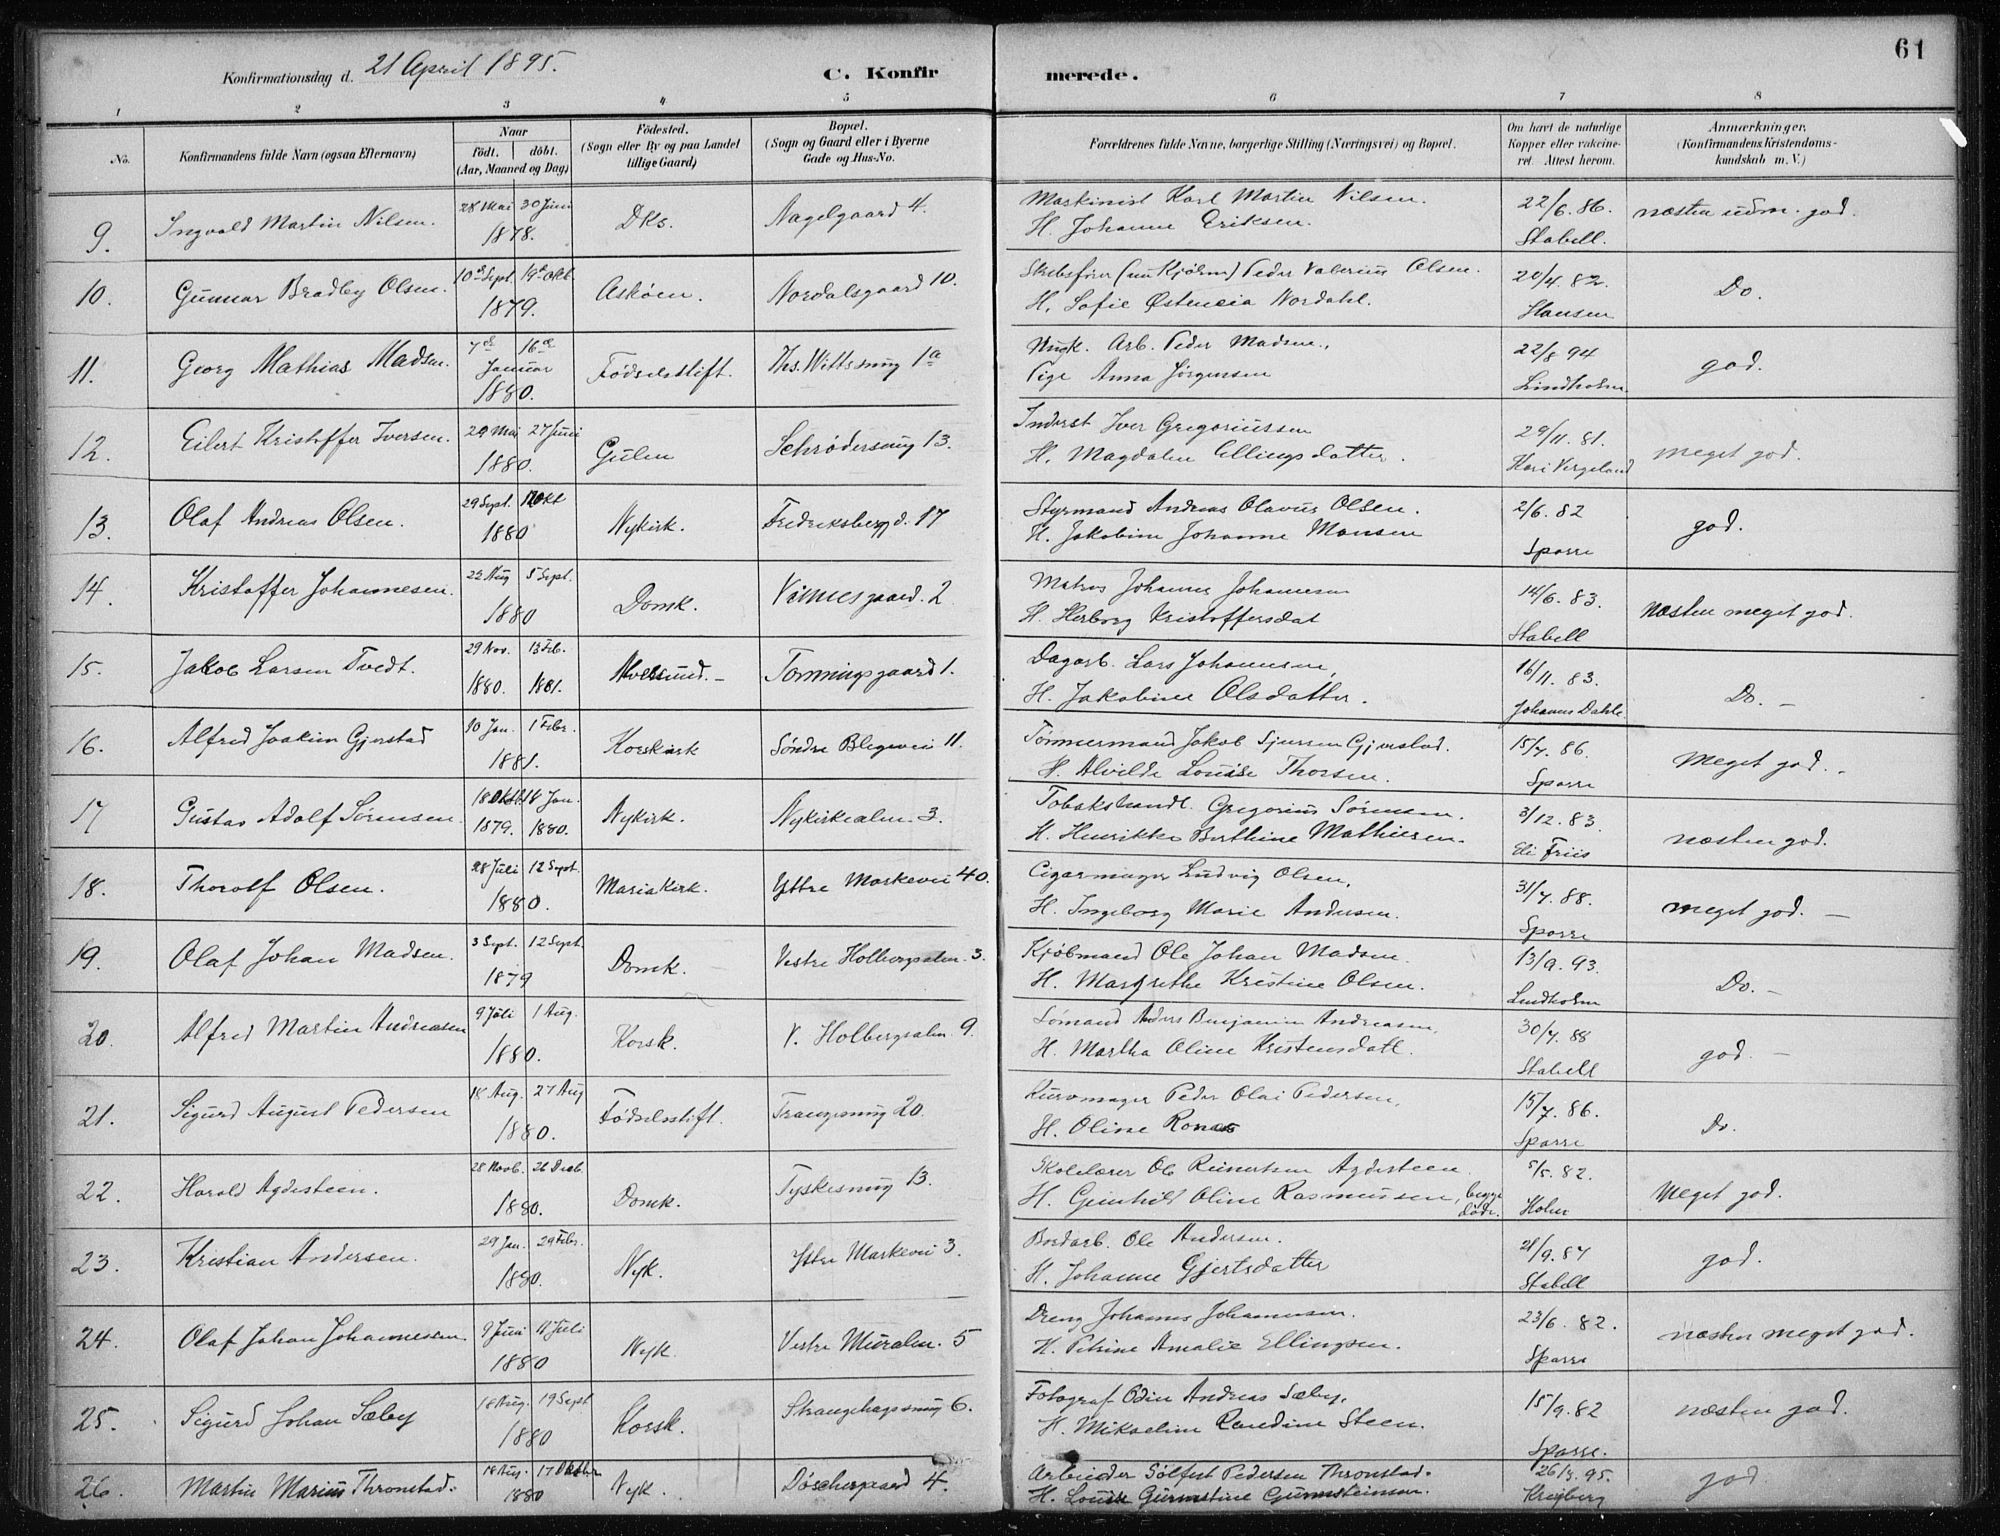 61
Konfirmationsdag d. 21 April 1895.
C. Konfirmerede.
1 2 3 4 5 6 7 8
No.
Konfirmandens fulde Navn (ogsaa Efternavn)
Naar
födt. döbt.
(Aar, Maaned og Dag)
Födested.
(Sogn eller By og paa Landet
tillige Gaard)
Bopæl.
(Sogn og Gaard eller i Byerne
Gade og Hus-No.
Forældrenes fulde Navne, borgerlige Stilling (Næringsvei) og Bopæl.
Om havt de naturlige
Kopper eller vakcine-
ret. Attest herom.
Anmærkninger.
(Konfirmandens Kristendoms-
kundskab m. V.)
9. Ingvald Martin Nilsen. 28 Mai 30 Juni 1878. Dks. Nagelgaard 4. Maskinist Karl Martin Nilsen. 22/6. 86. næsten udm. god.
H. Johanne Eriksen. Stabell.
10. Gunnar Bradley Olsen. 10de Sept. 19de Okt. 1879. Askøen. Nordalsgaard 10. Skibsfører Peder Valerius Olsen. 20/4. 82. Do.
H. Sofie Nordahl. Hansen
11. Georg Mathias Madsen. 7de 16de Januar 1880. Fødselsstift. Ths. Wittssmug 1a Ungk. Arb. Peder Madsen., 22/8 94 god.
Pige Anna Jørgensen Lindholm
12. Eilert Kristoffer Iversen. 29 Mai 27 Juni 1880. Gulen Schrødersmug 13. Inderst Iver Gregoriussen 29/11. 81. meget god.
H. Magdalene Ellingsdatter. Vergeland
13. Olaf Andreas Olsen. 29 Sept. Okt 1880 Nykirk. Fredriksbergd. 17 Styrmand Andreas Olavus Olsen. 2/6. 82 god.
H. Jakobine Johanne Monsen Sparre
14. Kristoffer Johannesen. 22 Aug 5 Sept. 1880 Domk. Vinnesgaard. 2 Matros Johannes Johannesen 14/6. 83. Næsten meget god.
H. Herborg Kristoffersdat Stabell
15. Jakob Larsen Tvedt. 29 Nov. 1880. 13 Feb. 1881. Alversund. - Tonningsgaard 1. Dagarb. Lars Johannesen, 16/11. 83. Do. -
H. Jakobine Olsdatter. Johannes Dahle
16. Alfred Joakim Gjerstad 10 Jan. 1 Febr. 1881. Korskirk Søndre Blegevei 11. Tømmermand Jakob Sjursen Gjerstad. 15/7. 86. Meget god. -
H. Alvilde Louise Thorsen. Sparre
17 Gustav Adolf Sørensen 18 Oktb. 1879. 18 Jan. 1880. Nykirk. Nykirkealm. 3. Tobakshandl. Gregorius Sørensen. 3/12. 83. næsten god.
H. Henrikke Berthine Mathiesen. Eli Friis
18. Thorolf Olsen. 28 Juli 12 Sept. 1880. Mariakirk. Yttre Markevei 40. Cigarmager Ludvig Olsen. 31/7. 88. meget god. -
H. Ingeborg Marie Andersen. Sparre
19. Olaf Johan Madsen. 3 Sept. 12 Sept. 1879 Domk. Vestre Holbergsalm. 3. Kjøbmand Ole Johan Madsen. 13/9. 93. Do. -
H. Margrethe Kristine Olsen. Lindholm
20. Alfred Martin Andreasen 9 Juli 1 Aug. 1880. Korsk. V. Holbergsalm 9. Sømand Anders Benjamin Andreasen, 30/7. 88 god. -
H. Martha Oline Kristensdatt. Stabell
21. Sigurd August Pedersen 18 Aug. 27 Aug 1880. Fødselsstift. Trangesmug 20. Kurvmager Peder Olai Pedersen, 15/7. 86. Do.
H. Oline Ronæs Sparre
22. Harald Agdesteen. 28 Novb. 26 Decb. 1880. Domk. Tyskesmug 13. Skolelærer Ole Reinertsen Agdesteen. 5/5. 82. Meget god.
H. Gunhild Oline Rasmussen, begge døde. Holm
23. Kristian Andersen. 29 Jan. 29 Febr. 1880. Nyk. Yttre Markevei 3. Bordarb. Ole Andersen. 21/9. 87 god.
H. Johanne Gjertsdatter Stabell
24. Olaf Johan Johannessen 9 Juni 11 Juli 1880 Nyk. Vestre Muralm. 5 Dreng Johannes Johannesen. 23/6. 82. næsten meget god.
H. Petrine Amalie Ellingsen. Sparre
25. Sigurd Johan Sæby 18 Aug. 19 Sept 1880 Korsk. Strangehagesmug 6. Fotograf Odin Andreas Sæby. 15/9. 82 næsten god.
H. Mikaeline Randine Steen. Sparre.
26. Martin Marius Thronstad. 18 Aug. 17 Oktober 1880 Nyk. Døschergaard 4. Arbeider Sølfest Pedersen Thronstad. 26/3. 95. god.
H. Louise Gurnstine Gunnsteinsen. Krøjberg